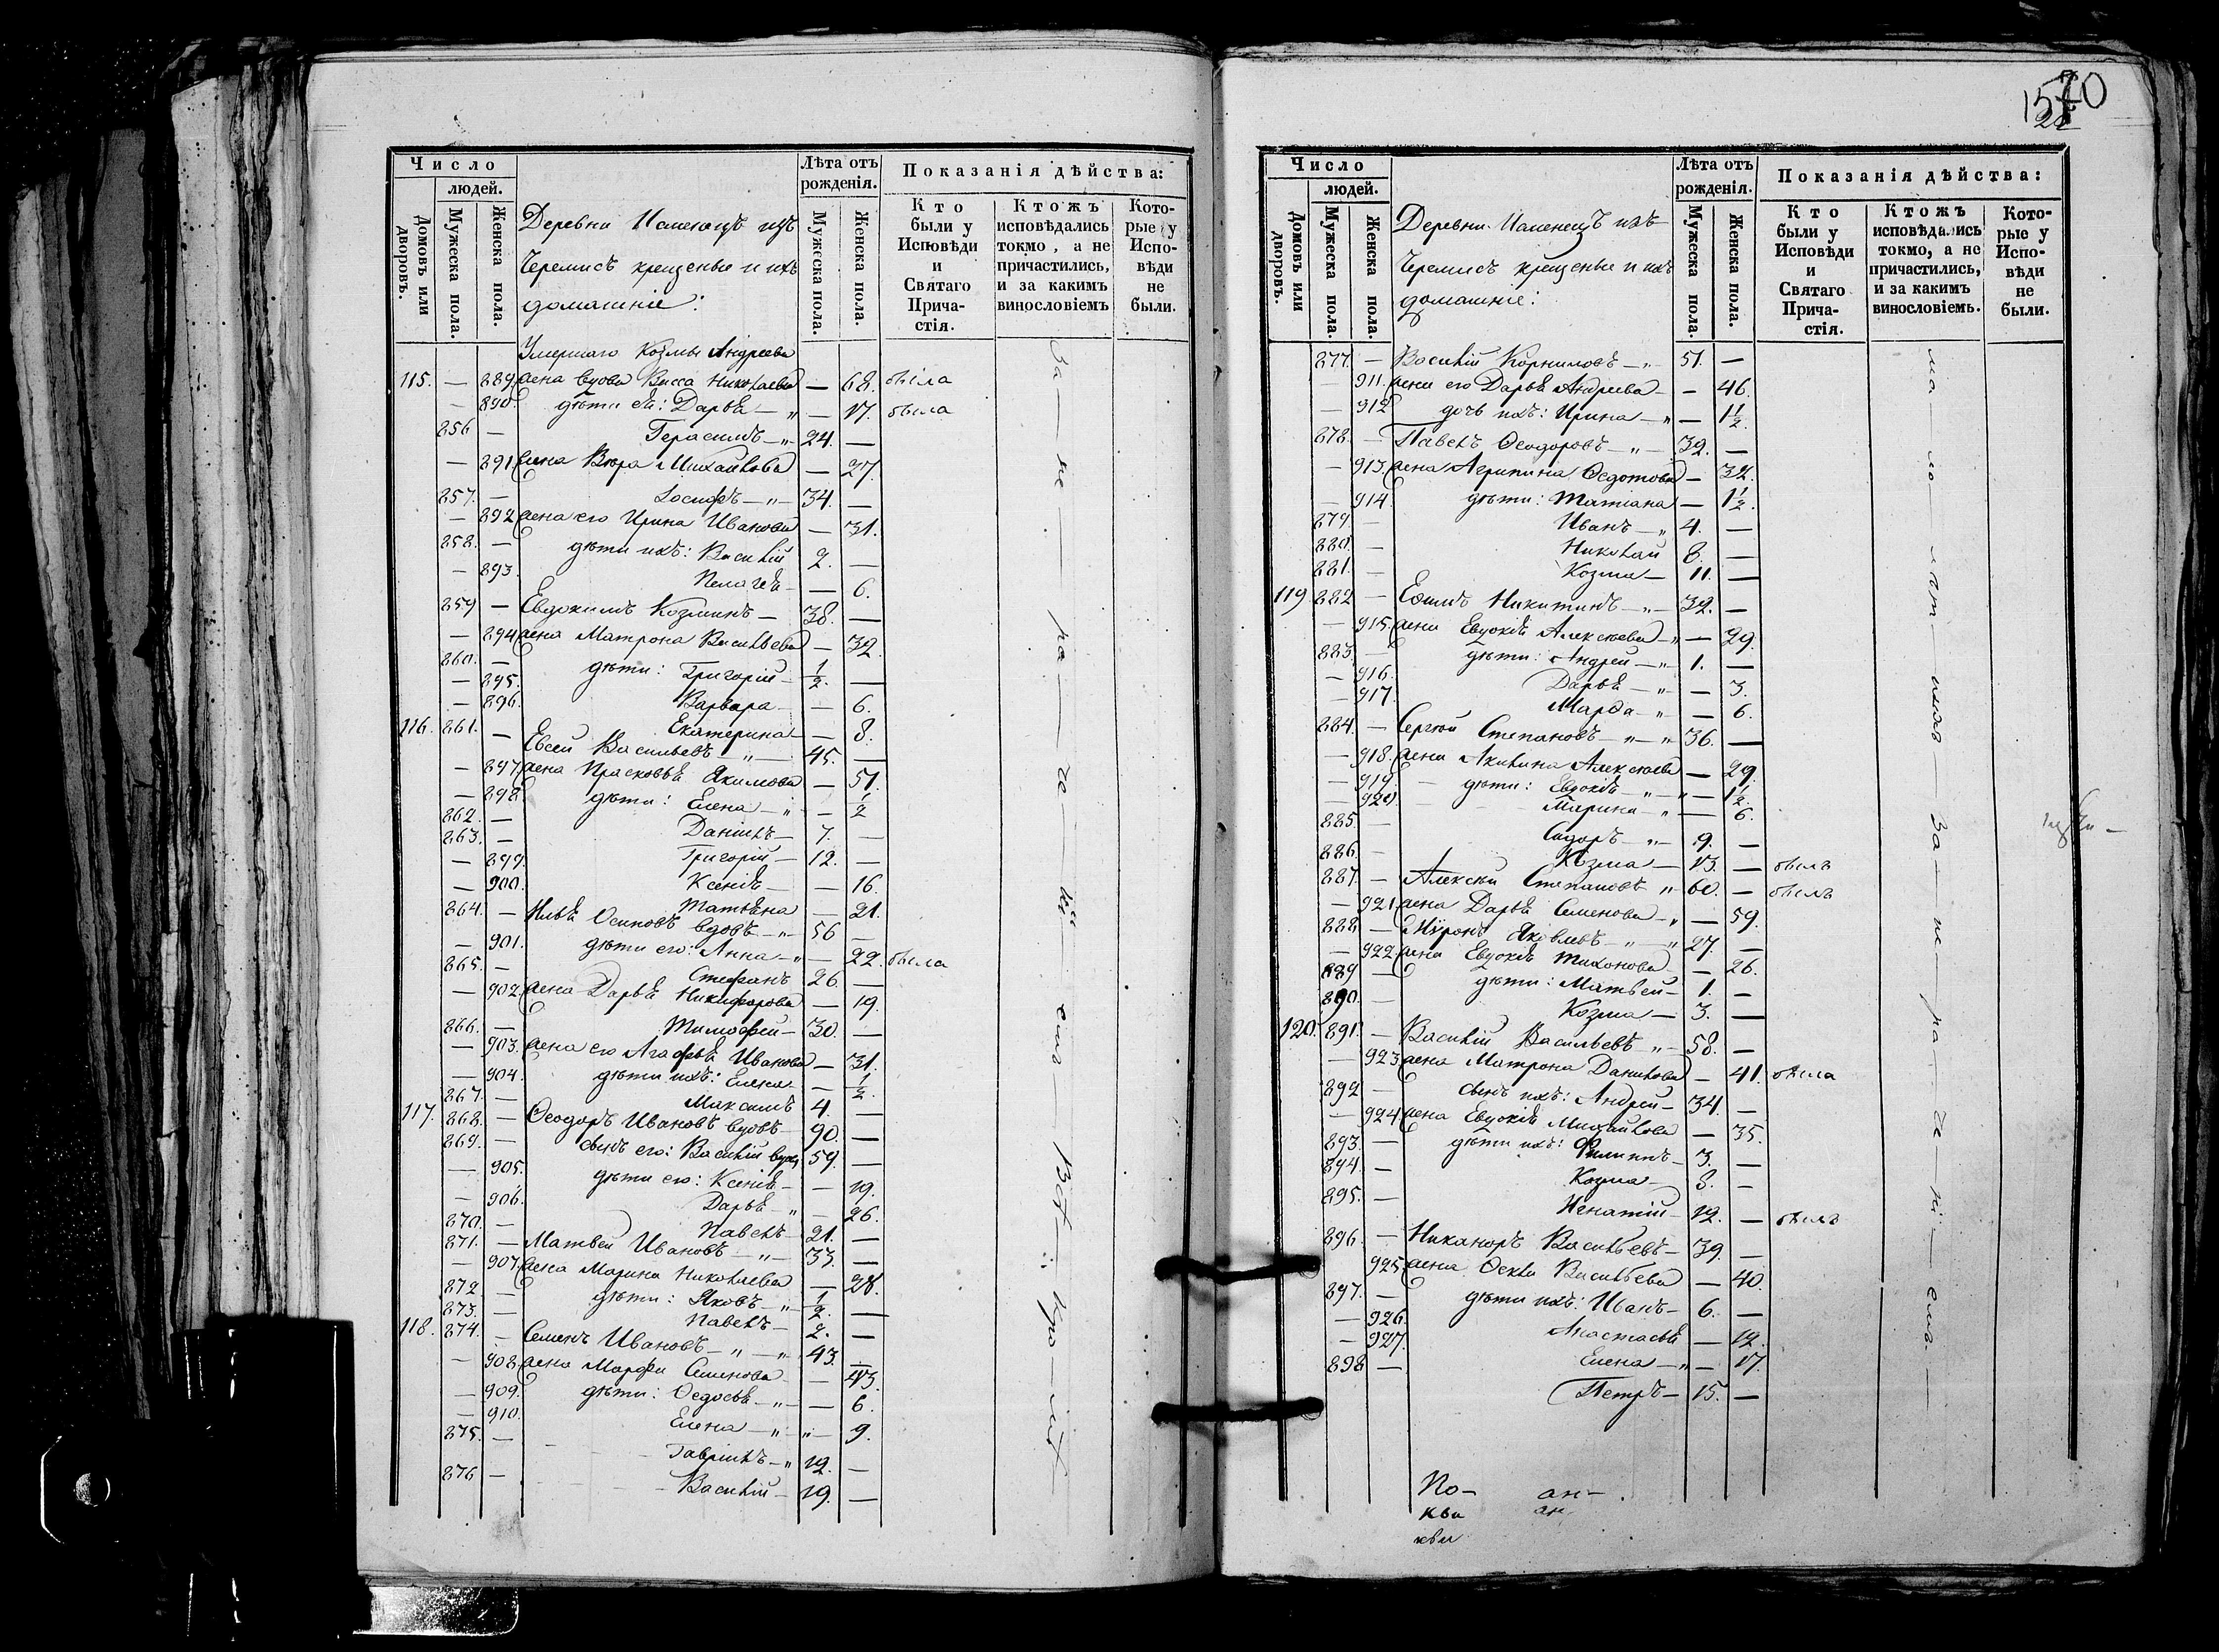 Число
людей.
Домовъ или дворовъ.
Мужеска пола.
Женска пола.
Деревни изъ
Черемисъ крещеные и ихъ
домашніе:
Лѣта отъ рожденія.
Мужеска пола.
Женска пола.
Показанія дѣйства:
Кто были у Исповѣди и Святаго Прича-стія.
Ктожъ исповѣдались токмо, а не причастились, и за какимъ винословіемъ
Кото-рые у Испо-вѣди не были.
Умершаго Козмы Андреева
115. — 889. жена вдова Васса Николаева — 68. была
— 890. дѣти ея: Дарья — „ — 17. была
856 — Герасимъ — „ — 24. —
— 891. жена Вѣра Михайлова — 27.
857. — Іосифъ — „ — 34. —
— 892 жена его Ирина Иванова — 31.
858. — дѣти ихъ: Василій 2. —
— 893. Пелагея — — 6.
859 — Евдокимъ Козминъ — 38. —
— 894 жена Матрона Васильева — 32.
860. — дѣти: Григорій — 1/2. —
— 895. Варвара — — 6.
— 896. Екатерина — — 8.
116. 861. — Евсей Васильевъ „ — 45. —
— 897. жена Прасковья Якимова — 51.
— 898. дѣти: Елена — „ — 1/2
862. — Даніилъ — 7. —
863. — Григорій — 12. —
— 899. Ксенія — — 16.
— 900. Татьяна — 21.
864. — Илья Осиповъ вдовъ — „ — 56 —
— 901. дѣти его: Анна — „ — 22. была
865. — Стефанъ 26. —
— 902. жена Дарья Никифорова — 19.
866. — Тимофей — 30. —
— 903. жена его Агафья Иванова — 31.
— 904. дѣти ихъ: Елена — 1/2.
867. — Максимъ 4. —
117. 868. — Ѳеодоръ Ивановъ вдовъ — 90. —
869. — сынъ его: Василій вдов. 59. —
— 905. дѣти его: Ксенія — — 19.
— 906. Дарья — „ — 26.
870. — Павелъ — 21. —
871. — Матвей Ивановъ — „ — 33. —
— 907. жена Марина Николаева — 28.
872 — дѣти: Яковъ — „ — 1/2. —
873. — Павелъ — 2. —
118. 874. — Семенъ Ивановъ — „ — „ 43. —
— 908. жена Марфа Семенова — 43.
— 909. дѣти: Ѳедосья — „ — — 6.
— 910. Елена — „ — „ — 9.
875. — Гавріилъ — „ 12. —
876 — Василій — 19. —
За — не — ра — че — ні — емъ
1570
Число
людей.
Домовъ или дворовъ.
Мужеска пола.
Женска пола.
Деревни изъ
Черемисъ крещеные и ихъ
домашніе:
Лѣта отъ рожденія.
Мужеска пола.
Женска пола.
Показанія дѣйства:
Кто были у Исповѣди и Святаго Прича-стія.
Ктожъ исповѣдались токмо, а не причастились, и за какимъ винословіемъ.
Кото-рые у Испо-вѣди не были.
877. — Василій Корниловъ — „ 51. —
— 911. жена его Дарья Андреева — — 46.
— 912 дочь ихъ: Ирина — „ — 1 1/2.
878. — Павелъ Ѳеодоровъ — „ — 32. —
— 913. жена Агрипина Ѳедотова — 32.
— 914. дѣти: Татіана — 1 1/2.
879. — Иванъ — „ 4. —
880. — Николай 8. —
881. — Козма — 11. —
119 882 — Ефимъ Никитинъ — „ — 32. —
— 915. жена Евдокія Алексѣева — „ — 29.
883. — дѣти: Андрей — „ 1. —
— 916. Дарья — „ — 3.
— 917. Марфа — „ — 6.
884. — Сергѣй Степановъ — „ — „ 36. —
— 918. жена Акилина Алексѣева — 29.
— 919. дѣти: Евдокія — „ — „ — 1 1/2.
— 920. Марина — „ — 6.
885. — Сидоръ — „ — 9. —
886. — Козма — 13. — былъ
887. — Алексѣй Степановъ „ 60. — былъ
— 921. жена Дарья Семенова — „ — 59.
888 — Миронъ Яковлевъ — „ — „ 27. —
— 922. жена Евдокія Тихонова — 26.
889 — дѣти: Матвей — 1. —
890. — Козма — 3. —
120. 891. — Василій Васильевъ „ — 58. —
— 923. жена Матрона Данилова — 41. была
892 — сынъ ихъ: Андрей — 34. —
— 924 жена Евдокія Михайлова — 35.
893. — дѣти ихъ: Филиппъ — 3. —
894. — Козма — 8. —
895. — Игнатій — 12. — былъ
896. — Никаноръ Васильевъ — 39. —
— 925. жена Ѳекла Васильева — 40.
897. — дѣти ихъ: Иванъ — 6. —
— 926. Анастасья — 12.
— 927. Елена — „ — 17.
898 — Петръ — 15. —
ма — ло — лѣт — ства за — не — ра — че — ні — емъ —
По- ан-
кви ан.
кви